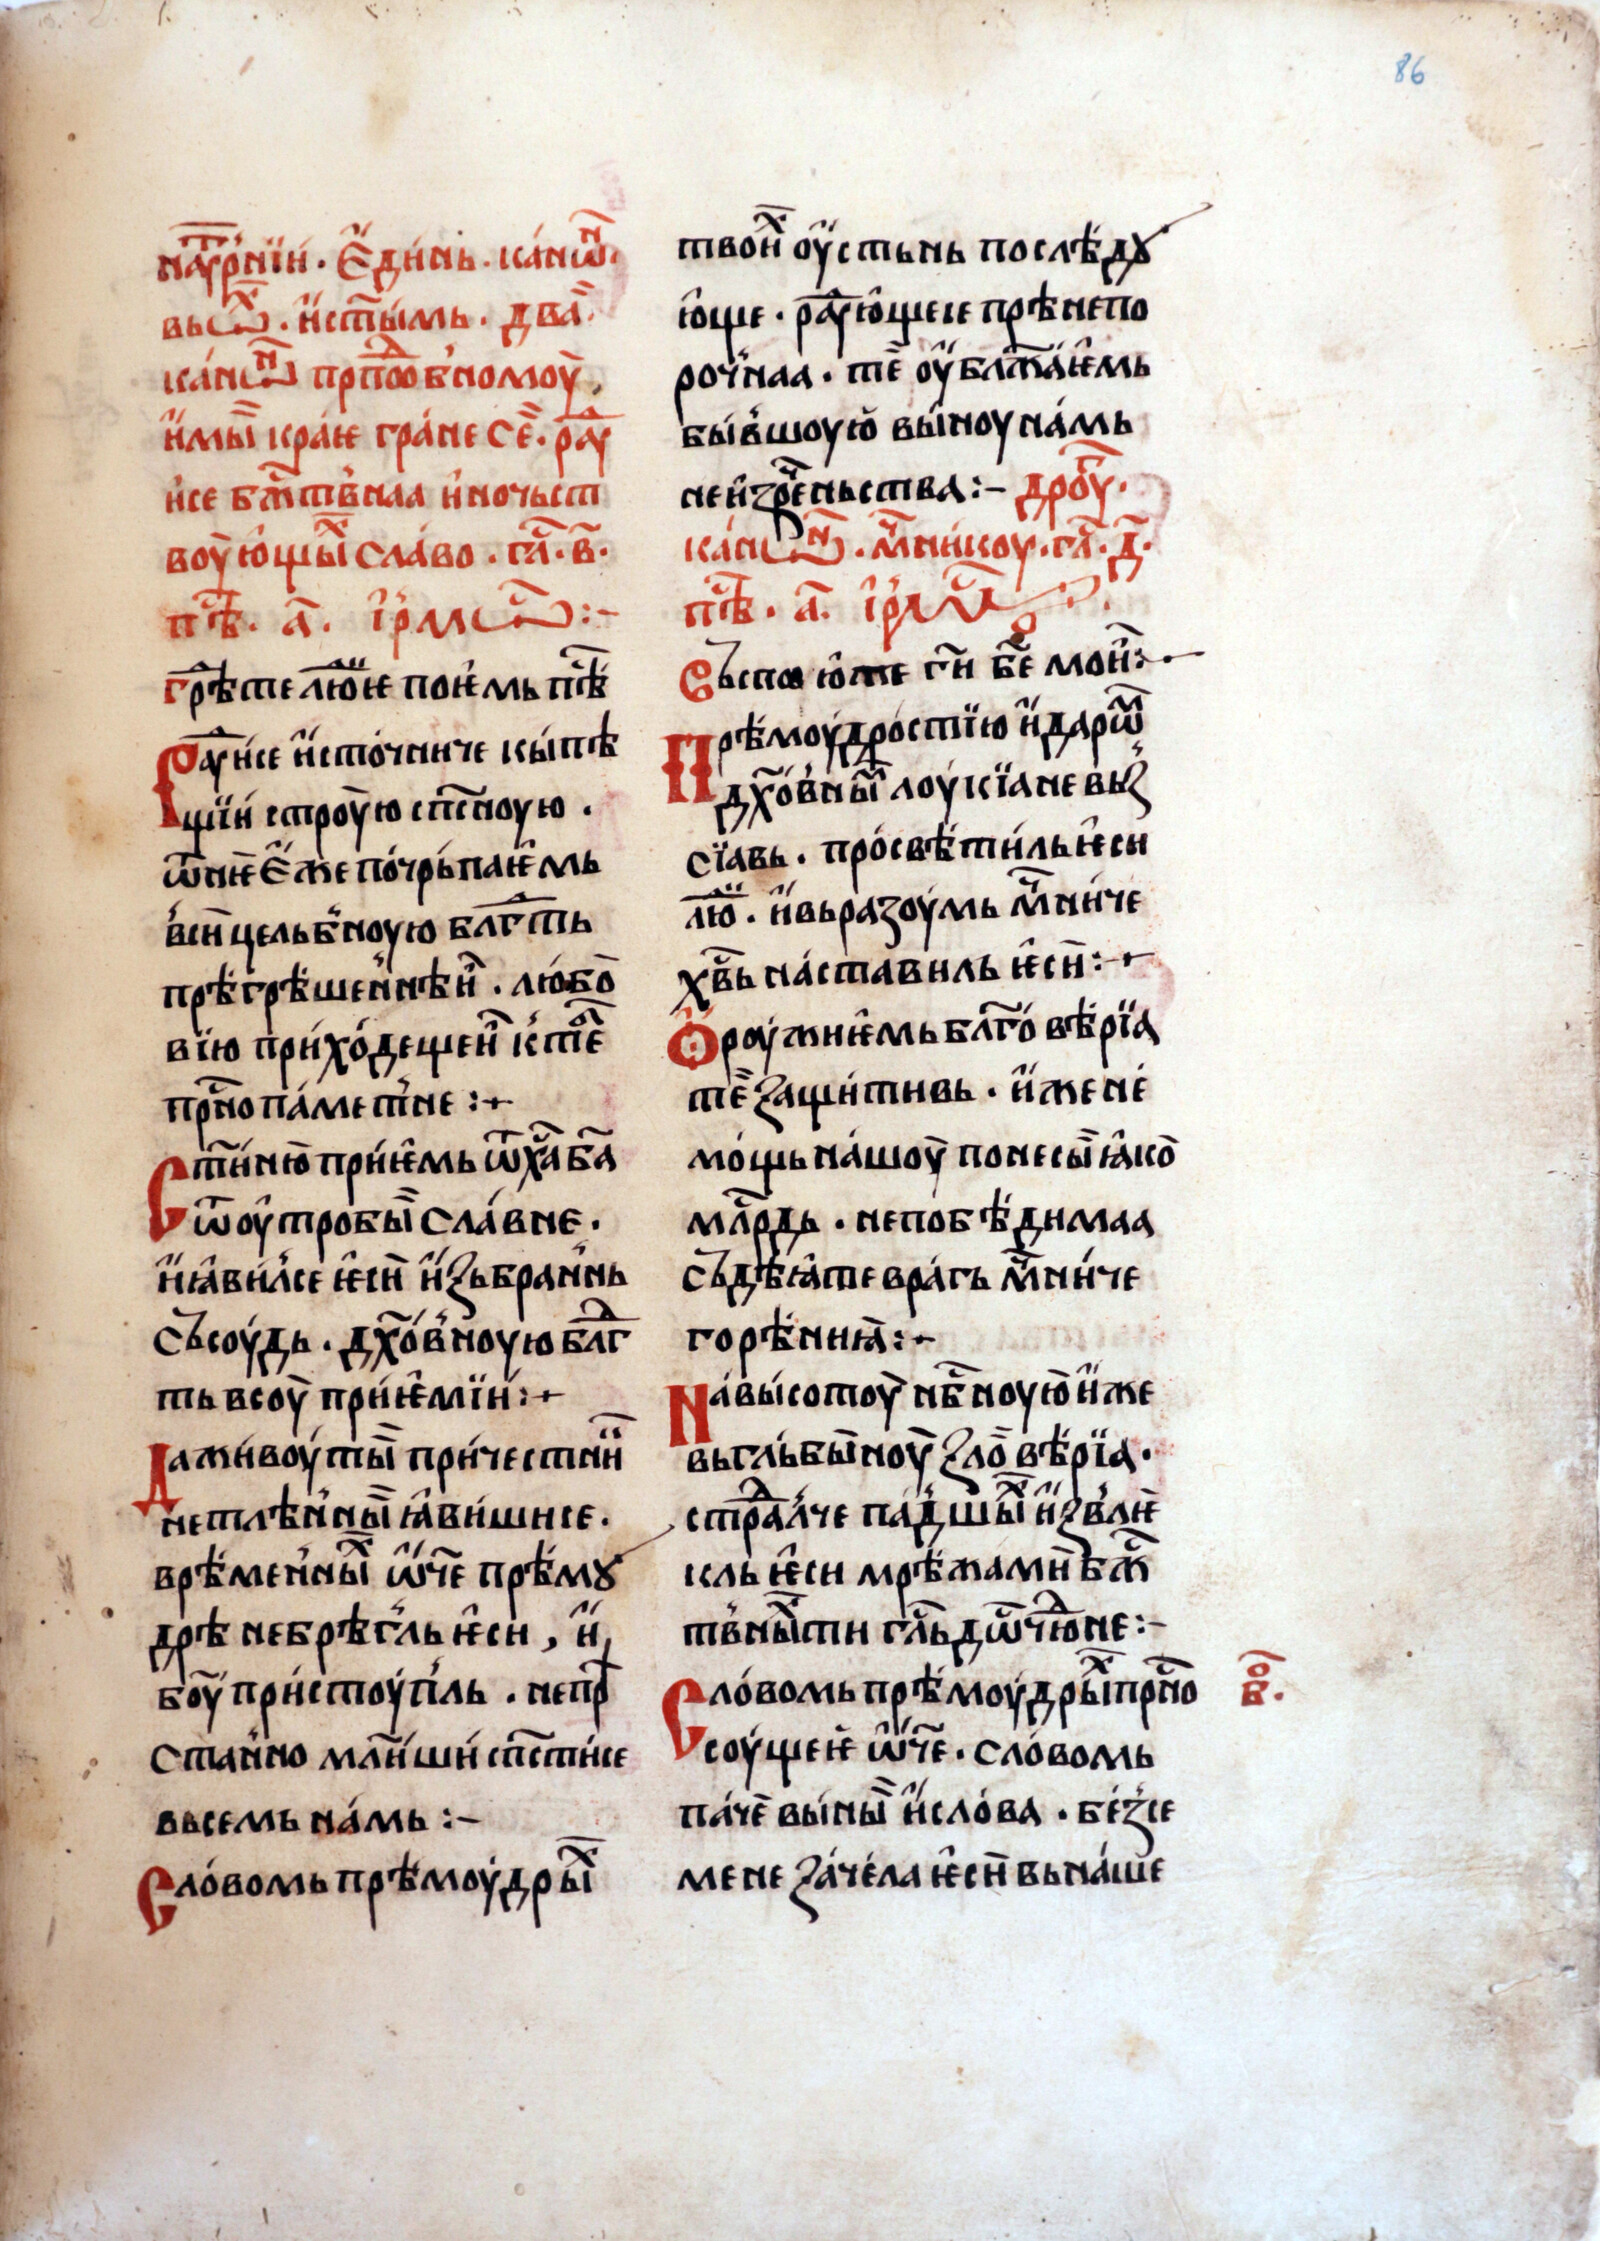 86
на оу҆трⷩ҇їи · Є҆ди́нь · канѡⷩ҇
вьсⷯ · и҆ст҃ы́мь · два̀
канѡⷩ҇ прⷣпⷪ҇бв҆номоу̀
и҆мы̏ кра́не гра́не се̏ · раⷣꙋ
и҆се бжⷭ҇тв҆наа и҆ночьст
воу̀ю҆щыⷯ сла́во · гла҃ · в҃ ·
пⷭ҇ѣ · а҃ · і҆рмⷭ҇ѡ :–
Грⷣѣте лю́дїе пои҆ємь пⷭ҇ѣ
Раⷣꙋи҆се и҆сто́чниче кы́пѣ
щїи строу̀ю сп҃сноую ·
ѿнѥ Є҆же почрь́паѥмь
в҆си̏ цельб҆ноую блгⷣть
прѣгрѣшен҆нѣи҆ · любо̀
вїю при́ходещеи҆ к҆тебѣ
прⷭ҇но па́мет҆не :+
Ст҃и́ню̀ при́ѥмь ѿ хⷭ҇а ба҃
ѿ оу҆тробы̏ сла́вне ·
и҆ꙗ҆ви́л҆се ѥ҆си̏ и҆збран҆нь
съсоу́дь · дх҃о́в҆ноую блгⷣ
ть всоу̀ при́ѥмїи :+
Да живоу́ты̏ при́чести́и
нетлѣн҆ны̏ ꙗ҆ви́шисе ·
врѣмен҆ныⷯ ѡ҆́ч҃е прѣмꙋ
дрѣ небрѣг҆ль ѥ҆си , и҆
боу҃ при́стоупиль · непрⷣ
стан҆но мл҃и́ши сп҃сти́се
вьсемь на́мь :–
Сло́вомь прѣмоу́дрыⷯ
твоиⷯ оу҆стьнь послѣдꙋ
ю҆ще · раⷣꙋю҆щеѥ прѣнепо
роч҆наа · те̏ оу҆бл҃жа́ѥмь
бы́в҆шоую̀ вы́ноу на́мь
неи҆зрⷱ҇еньства :– дроу҃г ·
канѡⷩ҇ · мⷱ҇ни́коу · гла҃ · д҃ ·
пⷭ҇ѣ · а҃ · і҆рмⷭ҇ѡ
Съспою҆те гⷭ҇и бе҃ мои҆ :
Прѣмоу́дростїю и҆ дарѡⷨ
дх҃о́в҆ныⷨ лоукїане вьз
сїавь · просвѣти́ль ѥ҆си
лю́ди · и҆ вьразоумь мⷱ҇ни́че
хв҃ь на́ставиль ѥ҆си̏ :+
Ѻ҆роужиѥмь блг҃о́вѣрїа
те̏ защи́тивь · и҆же не́
мо́щь на́шоу̀ понесы̏ ꙗ҆ко̀
млⷭ҇рдь · непобѣдимаа
съдѣꙗ҆те врагъ мⷱ҇ни́че
горѣниꙗ̀ :+
На́ вы́сотоу̀ нб҃ноую̀ и҆же
вьгльбы̏ноу̀ зло̏вѣрїа ·
стрⷣал҆че пад҆шыⷯ и҆зв҆лѥ
кль ѥ҆си мрѣжами̏ бжⷭ҇
тв҆ныⷯти гла҃ь дѿчюⷣне :–
Сло́вомь прѣмоу́дрыⷯ прⷭ҇но
соу́щеѥ ѡ҆́ч҃е · сло́вомь
па́че вы́ны̏ и҆сло́ва · без҆се
мене за́чела ѥ҆си̏ вь на́ше
бⷪ҇ ·